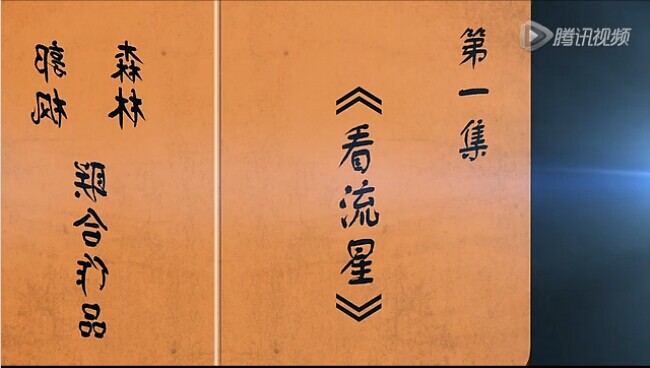 腾讯视频
第一集
《看流星》
森林
郭枫
联合作品